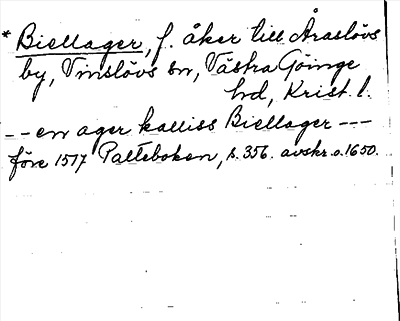 * Biellager, f. åker till Åraslövs
by, Vinslövs sn, Västra Göinge
hd, Krist. l.
-- en ager kalliss Biellager ---
före 1517 Palteboken, s. 356. avskr. o. 1650.